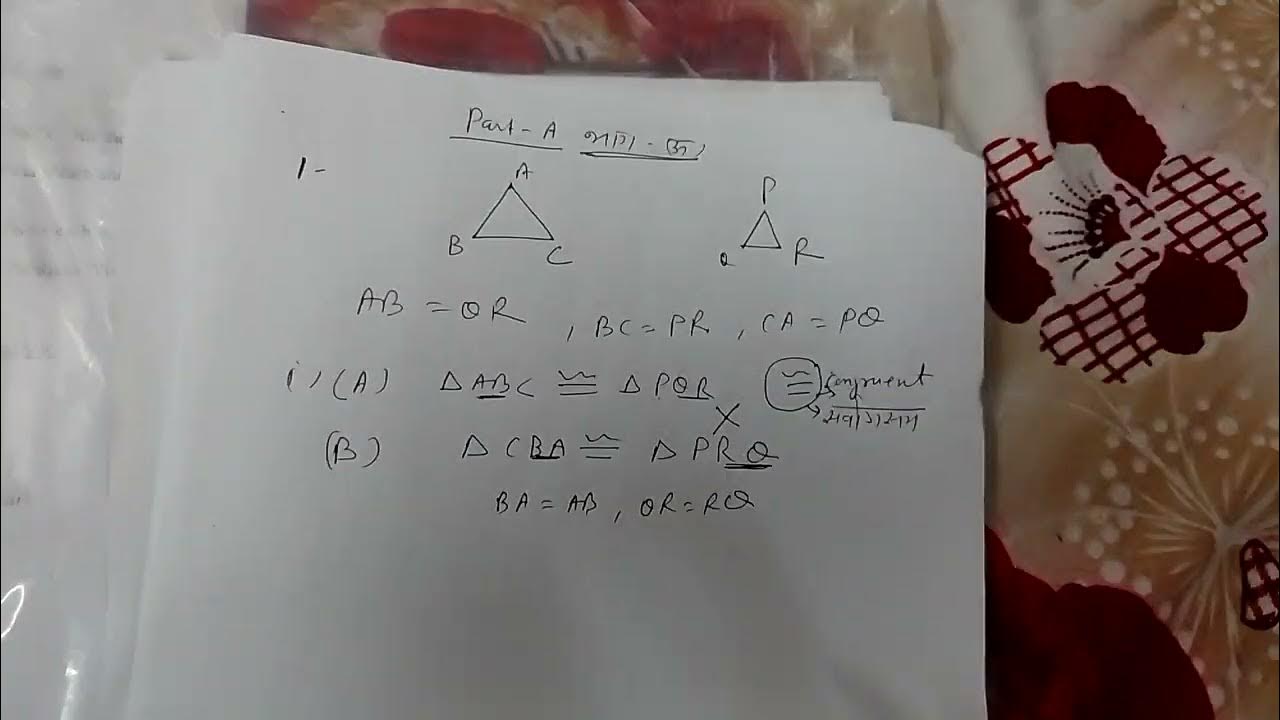 Part-A भाग-अ
1-
A
B
C
P
Q
R
AB = QR , BC = PR , CA = PQ
i) (A) △ABC ≅ △PQR X ≅ → Congruent
→ सर्वांगसम
(B) △CBA ≅ △PRQ
BA = AB , QR = RQ